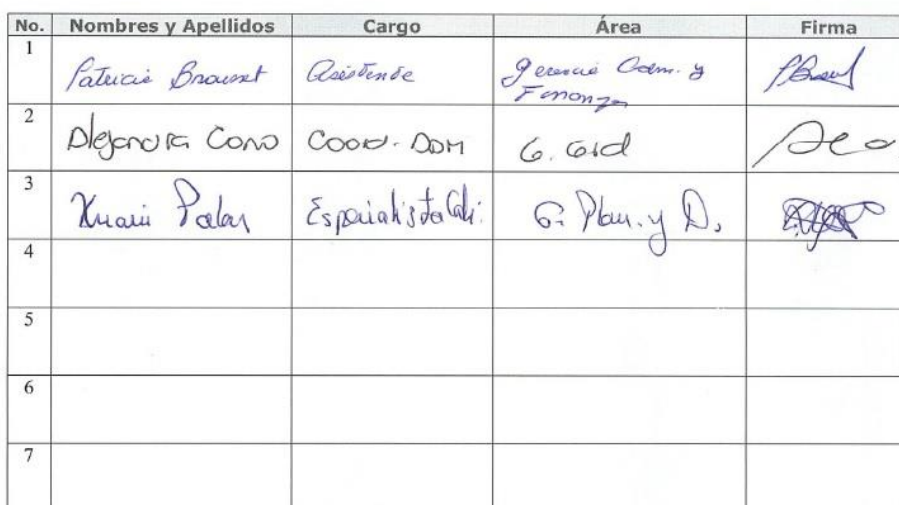 No. Nombres y Apellidos Cargo Área Firma
1 Patricia Brousset Asistente Gerencia Adm. y
Finanzas
2 Alejandra Cano Coord. ADM G. Gral
3 Especialista Cali. G. Plan. y D.
4
5
6
7